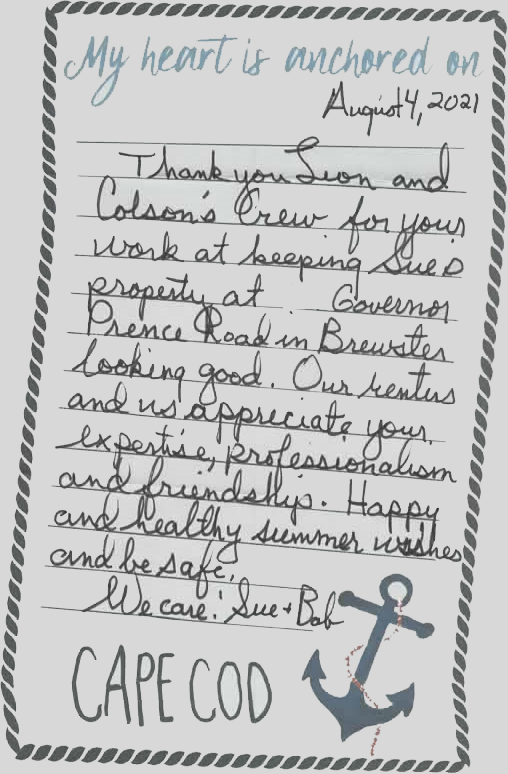 My heart is anchored on
August 4, 2021
Thank you Leon and
Colson's Crew for your
work at keeping Sue's
property at Governor
Prence Road in Brewster
looking good. Our renters
and us appreciate your
expertise, professionalism
and friendship. Happy
and healthy summer wishes
and be safe,
We care! Sue + Bob
CAPE COD